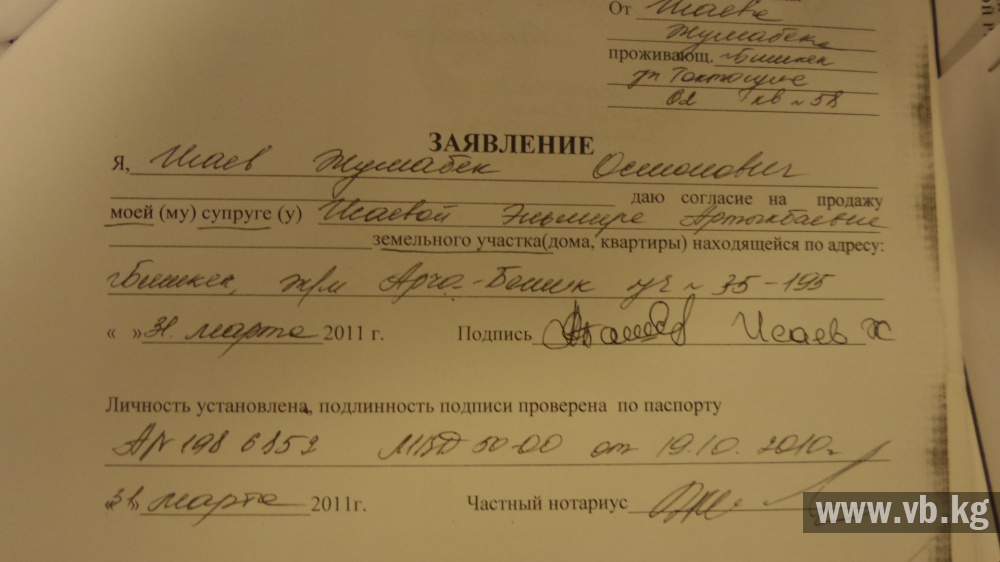 От Исаева
Жумабека
проживающ. г.Бишкек
ул Токтогула
62 кв N 58
ЗАЯВЛЕНИЕ
Я, Исаев Жумабек Осмонович
даю согласие на продажу
моей (му) супруге (у) Исаевой Эльмире Артыкбаевне
земельного участка(дома, квартиры) находящейся по адресу:
г.Бишкек, ж/м Арча-Бешик уч N 35-195
« »31. марта 2011 г. Подпись Исаев Ж
Личность установлена, подлинность подписи проверена по паспорту
AN 198 6852 МВД 50-00 от 19.10. 2010г
«31» марта 2011г. Частный нотариус
www.vb.kg